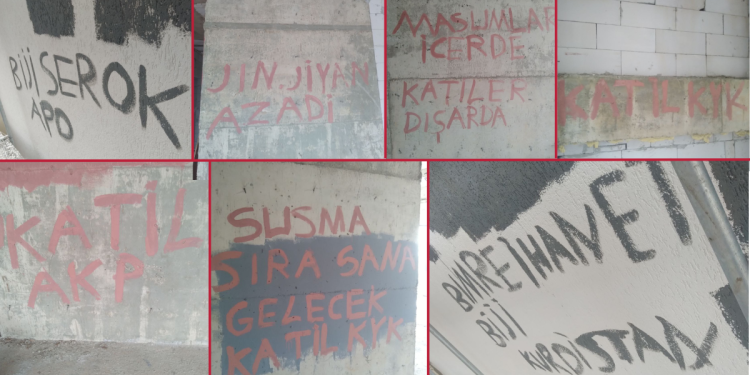 BIJI SEROK
APO
JIN. JIYAN
AZADİ
MASUMLAR
İCERDE
KATILER
DIŞARDA
KATİL KYK
KATİL
AKP
SUSMA
SIRA SANA
GELECEK
KATIL KYK
BIMRE IHANET
BIJI
KURDISTAN